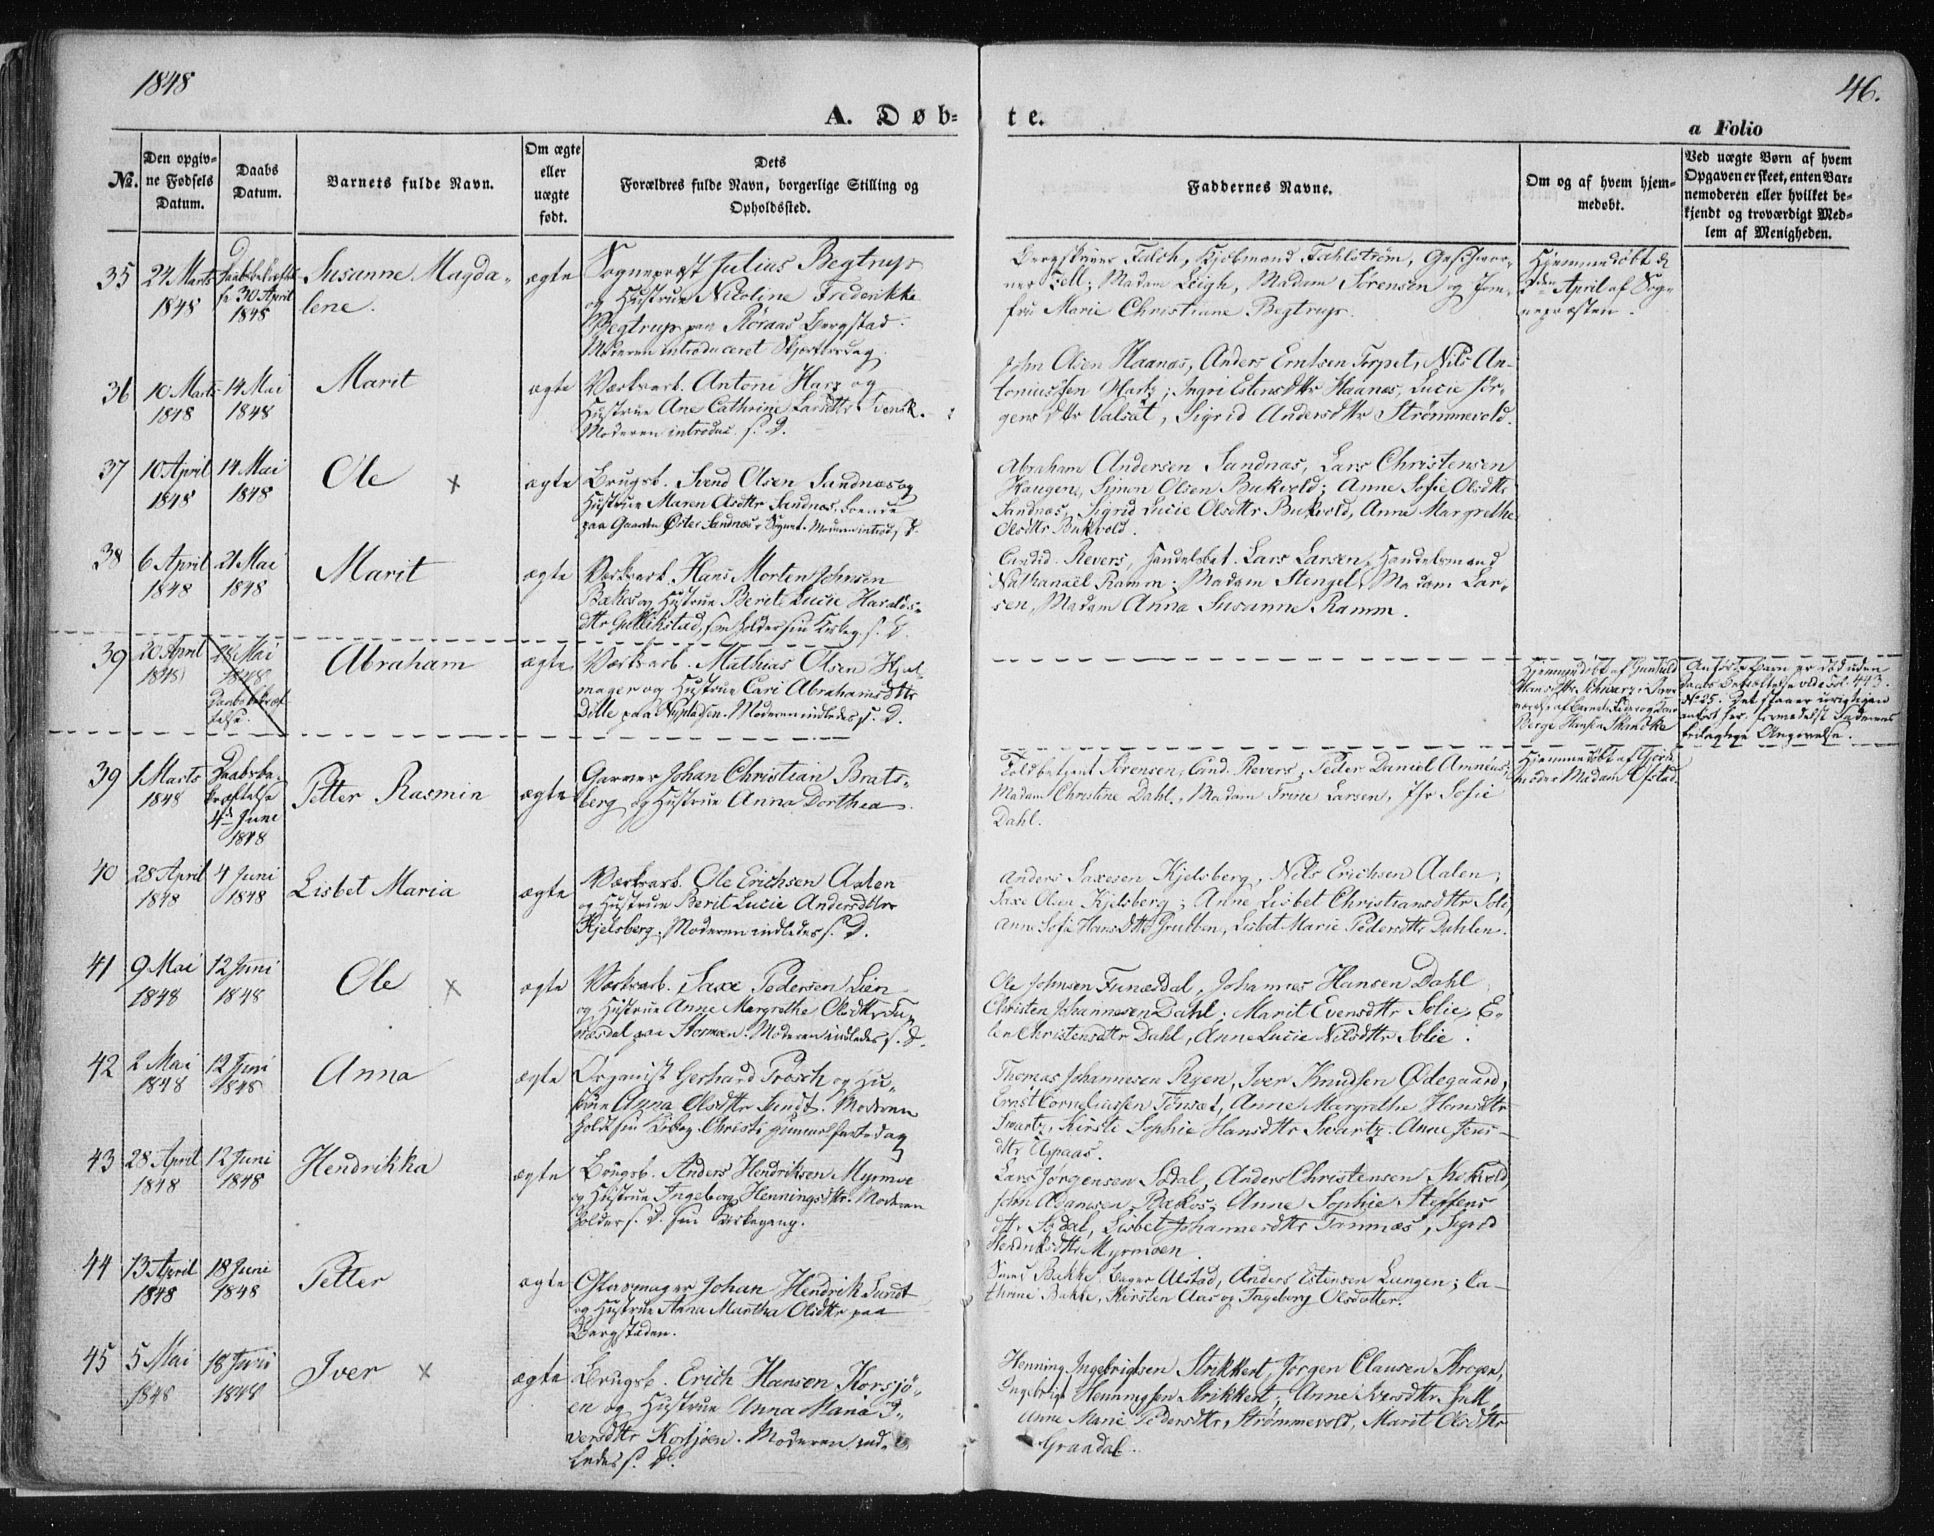 1848
46.
A. Døb-
te.
a Folio
No.
Den opgiv-
ne Fødsels
Datum.
Daabs
Datum.
Barnets fulde Navn.
Om ægte
eller
uægte
født.
Dets
Forældres fulde Navn, borgerlige Stilling og
Opholdssted.
Faddernes Navne.
Om og af hvem hjem-
medøbt.
Ved uægte Børn af hvem
Opgaven er skeet, enten Bar-
nemoderen eller hvilket be-
kjendt og troværdigt Med-
lem af Menigheden.
35
24 Marts
1848
30 April
1848
Susanne Magda-
lene.
ægte
Sognepræst Julius Begtrup
og Hustrue Nicoline Frederikke
Begtrup paa Røraas Bergstad.
Moderen introduceret Skjærtorsdag.
Falch, Kjøbmand Fahlstrøm,
Madam Leigh, Madam Sørensen og Jom-
fru Marie Christiane Begtrup.
Hjemmedøbt d
April af Sog-
nepræsten.
36
10 Marts
1848
14 Mai
1848
Marit
ægte
Værksarb. Antoni Harz og
Hustrue Ane Cathrine
Moderen introduc. s. D.
John Olsen Haanæs, Anders Erntsen Torpet, Nils An-
toniussen Hartz; Ingri Estensdttr Haanæs, Lucie Jør-
gensdttr Valsæt, Sigrid Andersdttr Strømmevold.
37
10 April
1848
14 Mai
1848
Ole x
ægte
Brugsb. Svend Olsen Sandnæs og
Hustrue Maren Olsdttr Sandnæs, boende
paa Gaarden Øster Sandnæs
Abraham Andersen Sandnæs, Lars Christensen
Haugen, Simon Olsen Bukvold; Anne Sofie Olsdttr
Sandnæs, Sigrid Lucie Olsdttr Bukvold, Anne Margrethe
Olsdttr Bukvold.
38
6 April
1848
21 Mai
1848
Marit
ægte
Værksarb. Hans Morten Johnsen
Bækos og Hustrue Berit Lucie Haralds-
dttr Gullikstad, som holder sin Kirkeg. s. D.
Candid. Revers, Handelsbet. Lars Larsen, Handelsmand
Nathanaël Ramm; Madam Stengel, Madam Lar-
sen, Madam Anna Susanne Ramm.
39
20 April
1848
28 Mai
1848
Daabsbekræf-
telse.
Abraham
ægte
Værksarb. Mathias Olsen Hjul-
mager og Hustrue Cari Abrahamsdttr
Dille paa Nypladsen. Moderen indledes s. D.
Hjemmedøbt af Gunhild
Hansdttr Schwarz
Anførte Barn er død uden
Daabsbekræftelse vide Fol. 443.
No 25. Det staaer urigtigen
anført her formedelst Faderens
Angivelse.
39
1 Marts
1848
Daabsbe-
kræftelse
4de Juni
1848
Petter Rasmin
ægte
Garver Johan Christian Brats-
berg og Hustrue Anna Dorthea.
Toldbetjent Sørensen, Cand. Revers, Peder Daniel
Madam Christine Dahl, Madam Trine Larsen, Jfr Sofie
Dahl.
Hjemmedøbt af Gjord-
moder Madam Ofstad.
40
28 April
1848
4 Juni
1848
Lisbet Maria
ægte
Værksarb. Ole Erichsen Aalen
og Hustrue Berit Lucie Andersdttr
Kjelsberg. Moderen indledes s. D.
Anders Saxesen Kjelsberg, Nils Erichsen Aalen,
Saxe Olsen Kjelsberg; Anne Lisbet Christiansdttr Soli,
Anne Sofie Hansdttr Grubben, Lisbet Marie Pedersdttr Dahlen.
41
9 Mai
1848
12 Juni
1848
Ole x
ægte
Værksarb. Saxe Pedersen Lien
og Hustrue Anne Margrethe Olsdttr Fu-
næsdal paa Stormoen. Moderen indledes s. D.
Ole Johnsen Funæsdal, Johannes Hansen Dahl,
Christen Johannesen Dahl; Marit Evensdttr Solie, E-
len Christensdttr Dahl, Anne Lucie Nilsdttr Solie.
42
2 Mai
1848
12 Juni
1848
Anna
ægte
Organist Gerhard Prosch og Hu-
strue Anna Olsdttr Sundt. Moderen
holdt sin Kirkeg. Christi Himmelfartsdag
Thomas Johannesen Ryen, Iver Knudsen Ødegaard,
Ernst Corneliussen Tønset, Anne Margrethe Hansdttr
Swartz, Kirsti Sophie Hansdttr Swartz. Anne Jens-
dttr Aspaas.
43
28 April
1848
12 Juni
1848
Hendrikka
ægte
Brugsb. Anders Hendriksen Myrmoe
og Hustrue Ingeborg Henningsdttr. Moderen
holder s. D. sin Kirkegang.
Lars Jørgensen Sødal, Anders Christensen
John Adamsen Bækos; Anne Sophie Steffens-
dttr Sødal, Lisbet Johannesdttr Sigrid
Hendriksdttr Myrmoen.
44
13 April
1848
18 Juni
1848
Petter
ægte
Glasmager Johan Hendrik Sundt
og Hustrue Anna Martha Olsdttr paa
Bergstaden.
Bakke, Bager Alstad, Anders Estensen Lungen; Ca-
thrine Bakke, Kirsten Aas og Ingeborg Olsdatter.
45
5 Mai
1848
18 Juni
1848
Iver x
ægte
Brugsb. Erich Hansen Korsjø-
en og Hustrue Anna Maria I-
versdttr Korsjøen. Moderen ind-
ledes s. D.
Henning Ingebrigtsen Strikkert, Jørgen Clausen Krogen,
Ingebrigt Henningsen Strikkert; Anne Iversdttr
Anne Marie Pedersdttr Strømmevold, Marit Olsdttr
Graadal.